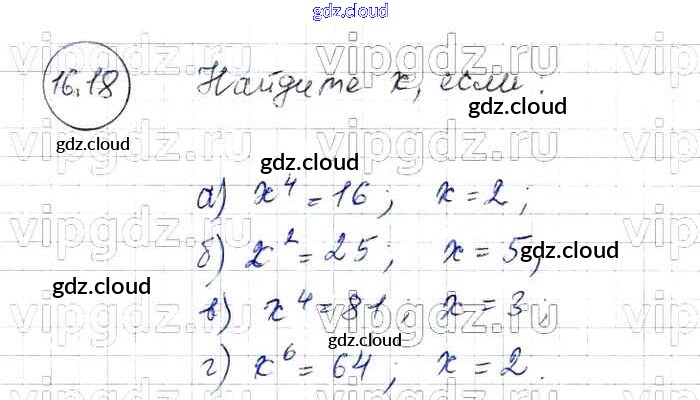 gdz.cloud
vipgdz.ru vipgdz.ru
16.18 Найдите x, если:
gdz.cloud
gdz.cloud
vipgdz.ru vipgdz.ru
gdz.cloud
а) x⁴ = 16; x = 2;
vipgdz.ru vipgdz.ru
б) x² = 25; x = 5;
gdz.cloud
gdz.cloud
в) x⁴ = 81; x = 3;
vipgdz.ru vipgdz.ru
gdz.cloud
г) x⁶ = 64; x = 2.